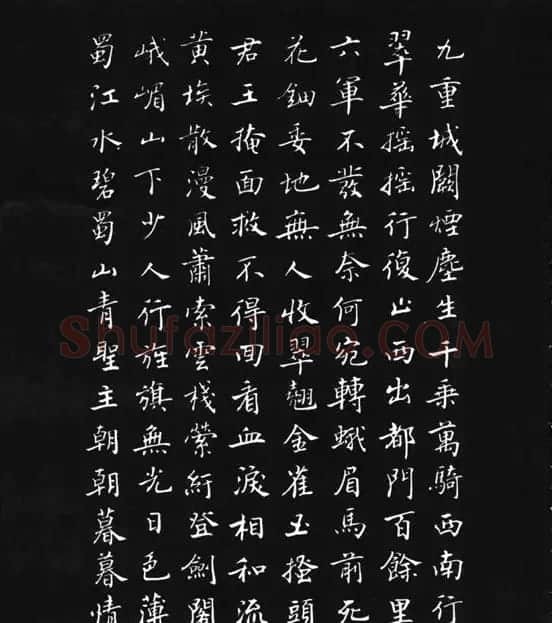 九重城闕煙塵生千乗萬騎西南行
翠華搖搖行復止西出都門百餘里
六軍不發無奈何宛轉蛾眉馬前死
花鈿委地無人收翠翹金雀玉搔頭
君王掩面救不得回看血淚相和流
黃埃散漫風蕭索雲棧縈紆登劍閣
峨嵋山下少人行旌旗無光日色薄
蜀江水碧蜀山青聖主朝朝暮暮情
Shufaziliao.COM